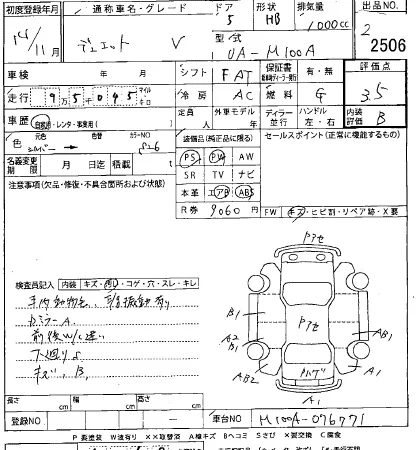 初度登録年月 通称車名・グレード ドア 形状 排気量 出品NO.
11月 デュエット V 5 HB 1000cc 2
型式 UA-M100A 2506
車検 年 月 シフト FAT 保証書 有・無 評価点
走行 9万5千045 マイル キロ 冷房 AC 燃料 G 3.5
車歴 自家用・レンタ・事業用 定員 人 外車モデル 年 ディーラー 並行 ハンドル 左・右 内装評価 B
色 シルバー 色替 カラーNO S26 装備品(純正品に限る) セールスポイント(正常に機能するもの)
PS PW AW
名義変更期限 月 日迄 積載 SR TV ナビ
注意事項(欠品・修復・不具合箇所および状態) 本革 エアB ABS
R券 9060 FW キズ・ヒビ割・リペア跡・X要
検査員記入 内装 キズ・コゲ・穴・スレ・キレ
Pアセ
B1
Pアセ
DミラーA A2 B1 AB1
前後W/C違い
下廻りS AB2 Pハゲ A1
キズ、B、 A1
長さ cm 幅 cm 高さ cm
登録NO 車台NO M100A-076771
P要塗装 W波有り ××取替済 A線キズ Bヘコミ Sさび ×要交換 C腐食